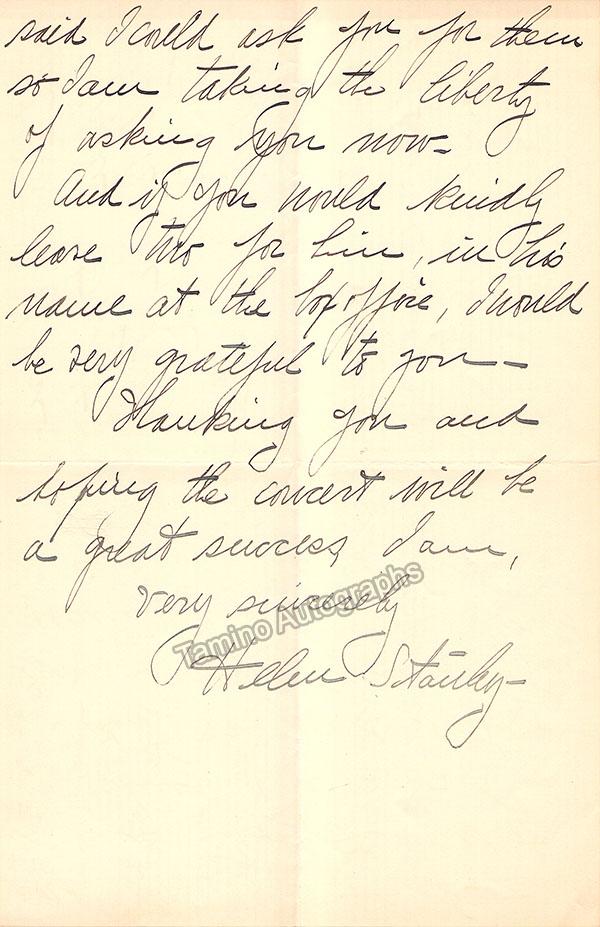 said I could ask you for them
so I am taking the liberty
of asking you now -
And if you would kindly
leave two for him, in his
name at the box office, I would
be very grateful to you -
Thanking you and
hoping the concert will be
a great success, I am,
very sincerely
Tamino Autographs
Helen Stanley -